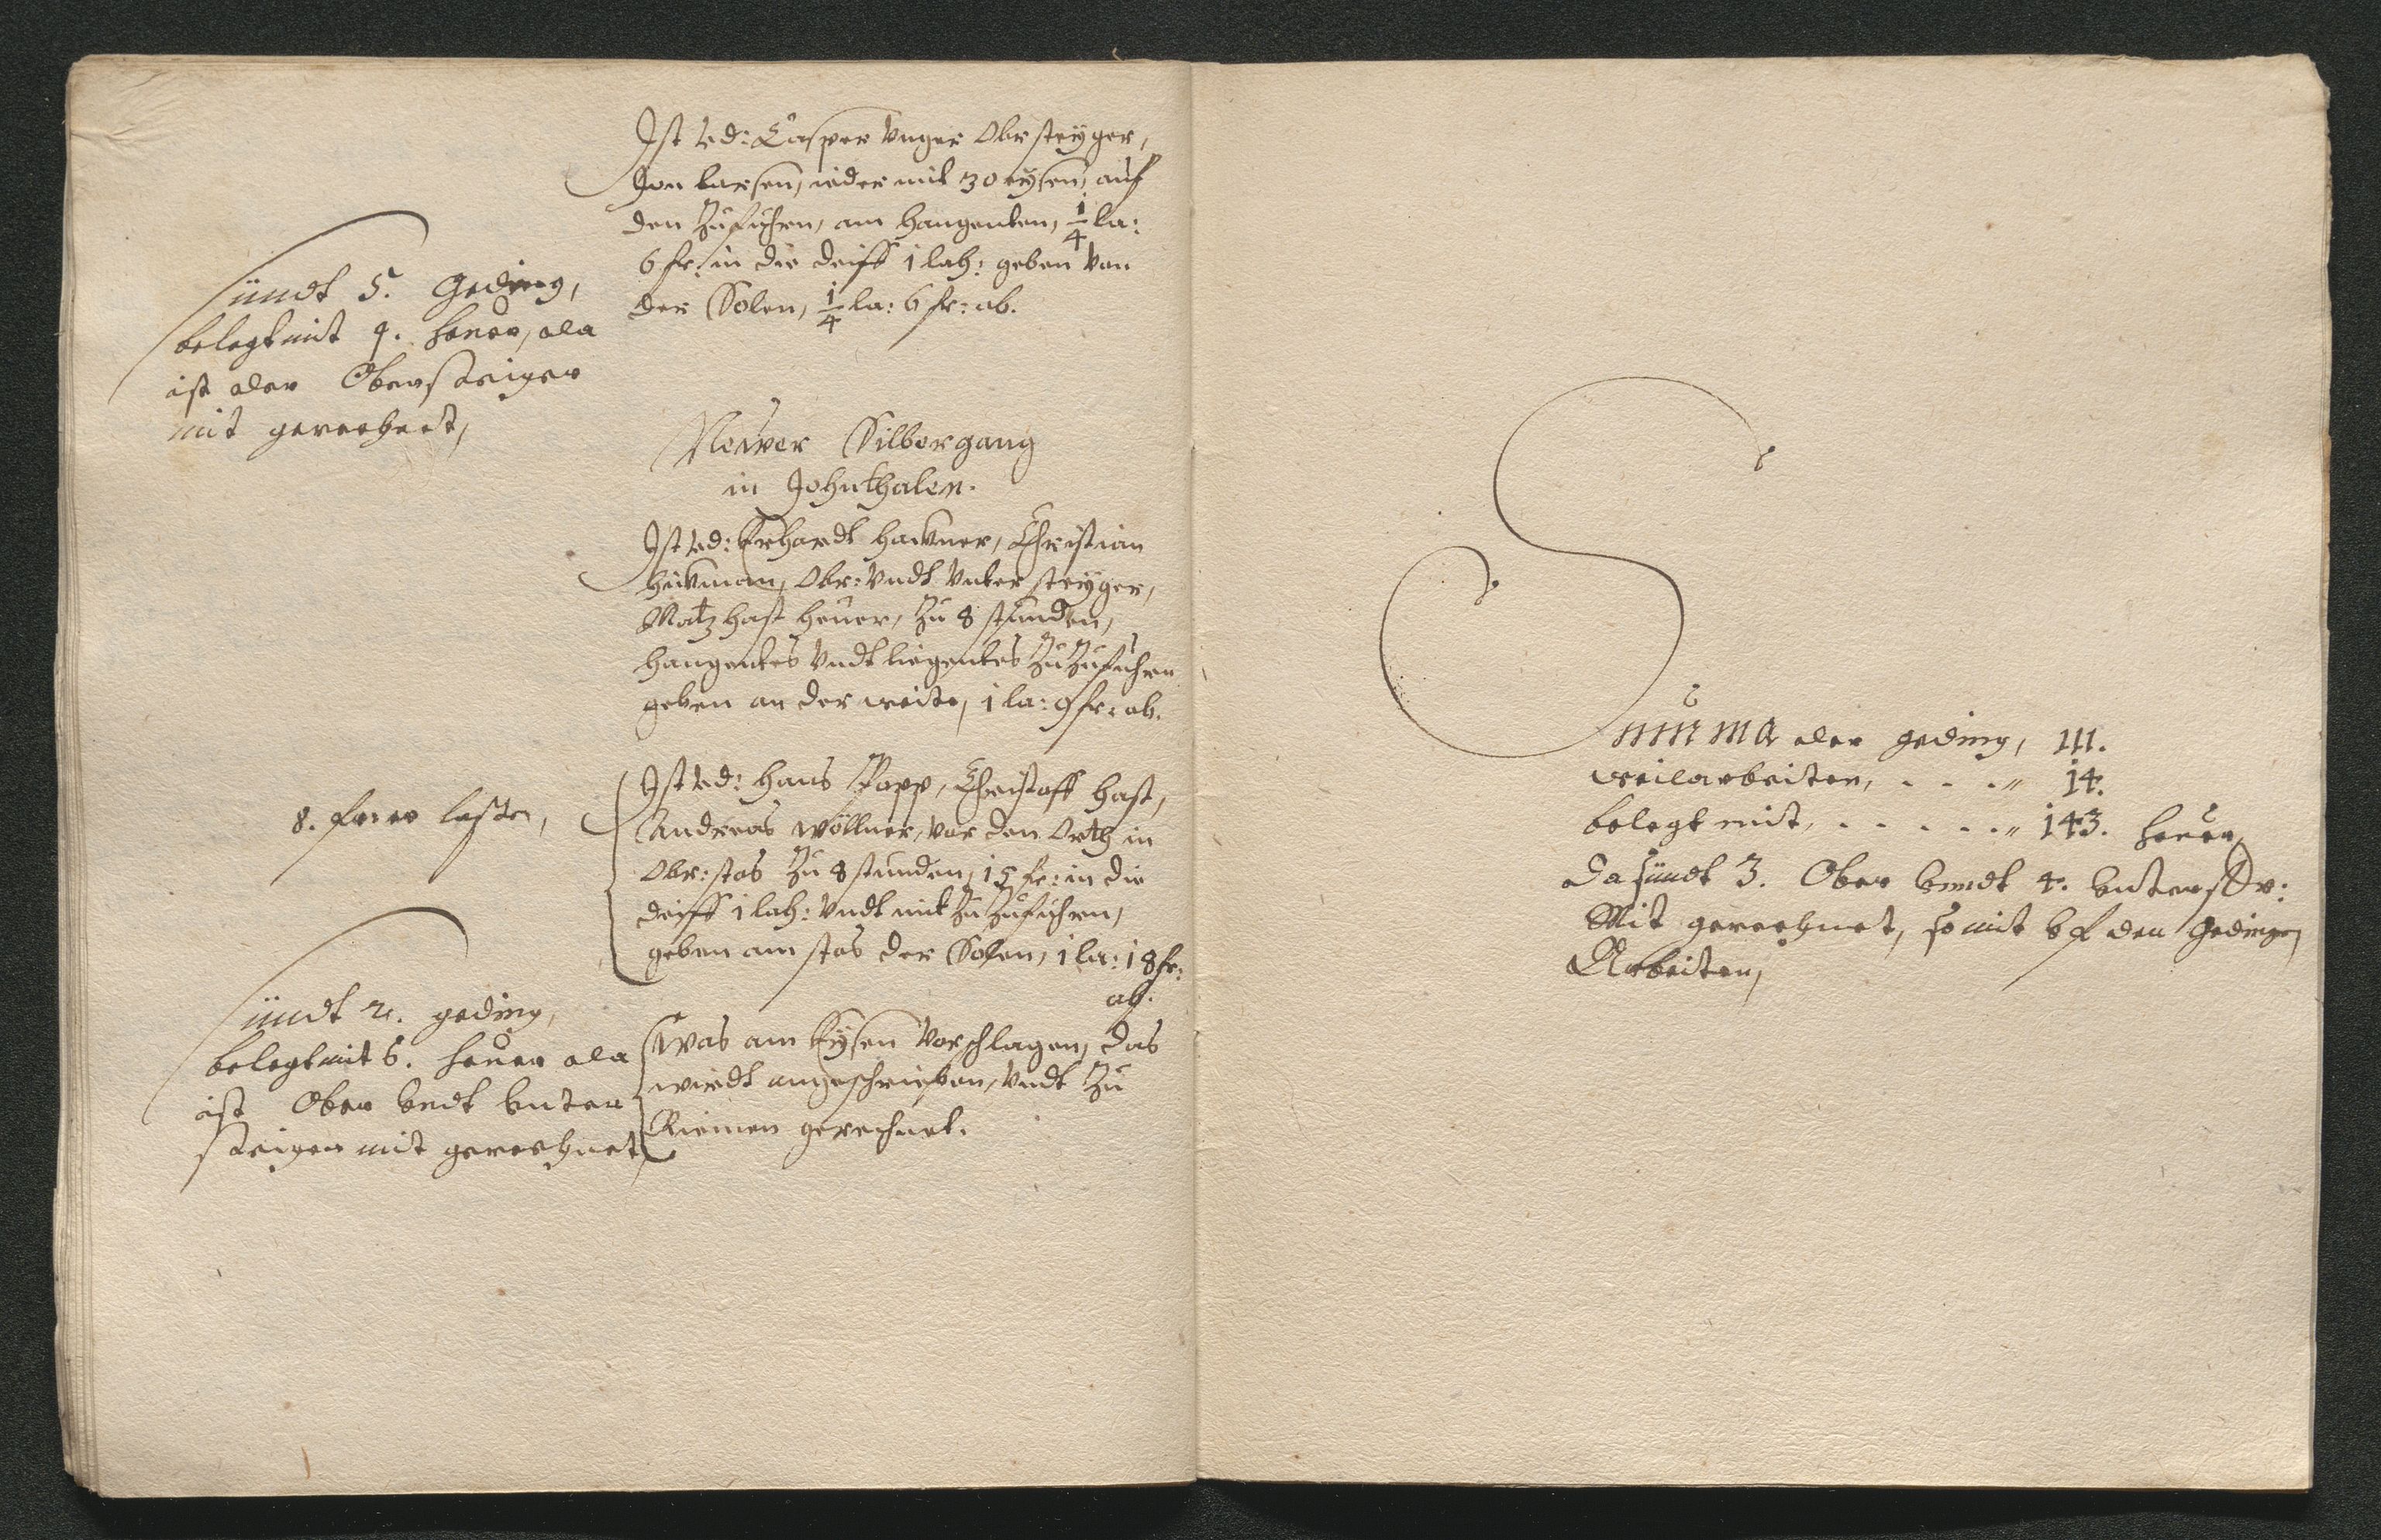 Ist ved: Casper Unger Obr steyger,
Jon larsen, ieder mit 30 eysen, auf
den Zuführen, am hangenten, 1/4 la:
6 fr: in die deiff 1 lah: geben von
der Solen, 1/4 la: 6 fr: ab.
sündt 5. geding,
belegt mit 9. heuer, da
ist der Obersteiger
mit gerechnet,
Newer Silbergang
in Johnthalen.
Ist ved: Erhardt hawner, Christian
Obr: vndt Vnter steyger,
Matz hast heuer, Zu 8 stunden,
hangentes vndt liegentes Zu Zuführen
geben an der weite, 1 la: 9 fr: ab.
8. laster,
Ist ved: Hans Popp, Christoff hast,
Andreas Wöllner, vor den Orth in
Obr: stos Zu 8 stunden, 15 fr: in die
deiff 1 lah: vndt mit Zu Zuführen,
geben am stos der Solen, 1 la: 18 fr:
ab.
sündt 2. geding,
belegt mit 6. heuer da
ist Ober vndt vnter
steiger mit gerechnet
Was am Eysen vorschlagen, das
wirdt angeschrieben, vndt Zu
Riemen gerechnet.
Summa der geding, 111.
weilarbeiten, . . . " 14.
belegt mit, . . . . . " 143. heuer,
da sündt 3. Ober vnndt 4. vnterstr:
Mit gerechnet, so mit vf den gedingen
Arbeiten,